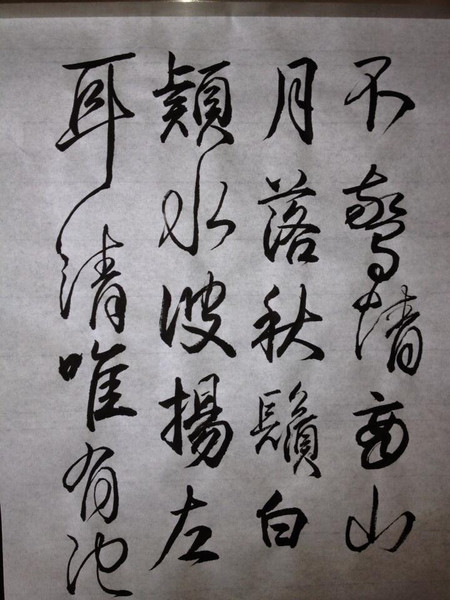 不驚情商山
月落秋鬚白
潁水波揚左
耳清唯有池